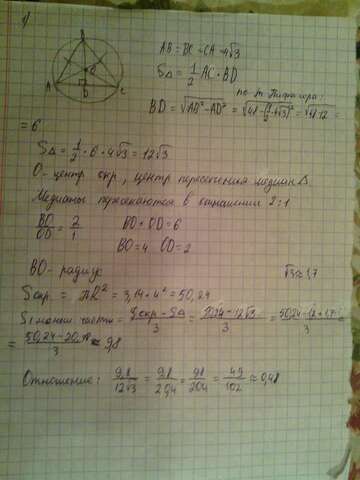 1)
B
O
A D C
AB = BC = CA = 4√3
S∆ = 1/2 AC · BD
по т. Пифагора:
BD = √(AB² - AD²) = √(48 - (1/2 · 4√3)²) = √(48 - 12) =
= 6
S∆ = 1/2 · 6 · 4√3 = 12√3
О - центр окр, центр пересечения медиан ∆.
Медианы пересекаются в отношении 2:1
BO/OD = 2/1 BO + OD = 6
BO = 4 OD = 2
BO - радиус √3 ≈ 1,7
Sокр. = πR² = 3,14 · 4² = 50,24
S1 части = (Sокр - S∆)/3 = (50,24 - 12√3)/3 = (50,24 - 12 · 1,7)/3 =
= (50,24 - 20,4)/3 ≈ 9,8
Отношение: 9,8/12√3 = 9,8/20,4 = 98/204 = 49/102 ≈ 0,48